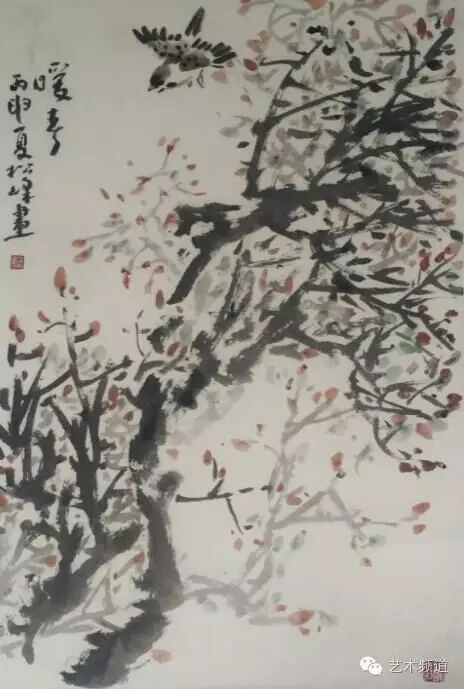 暖春
丙申夏松峰畫
艺术频道